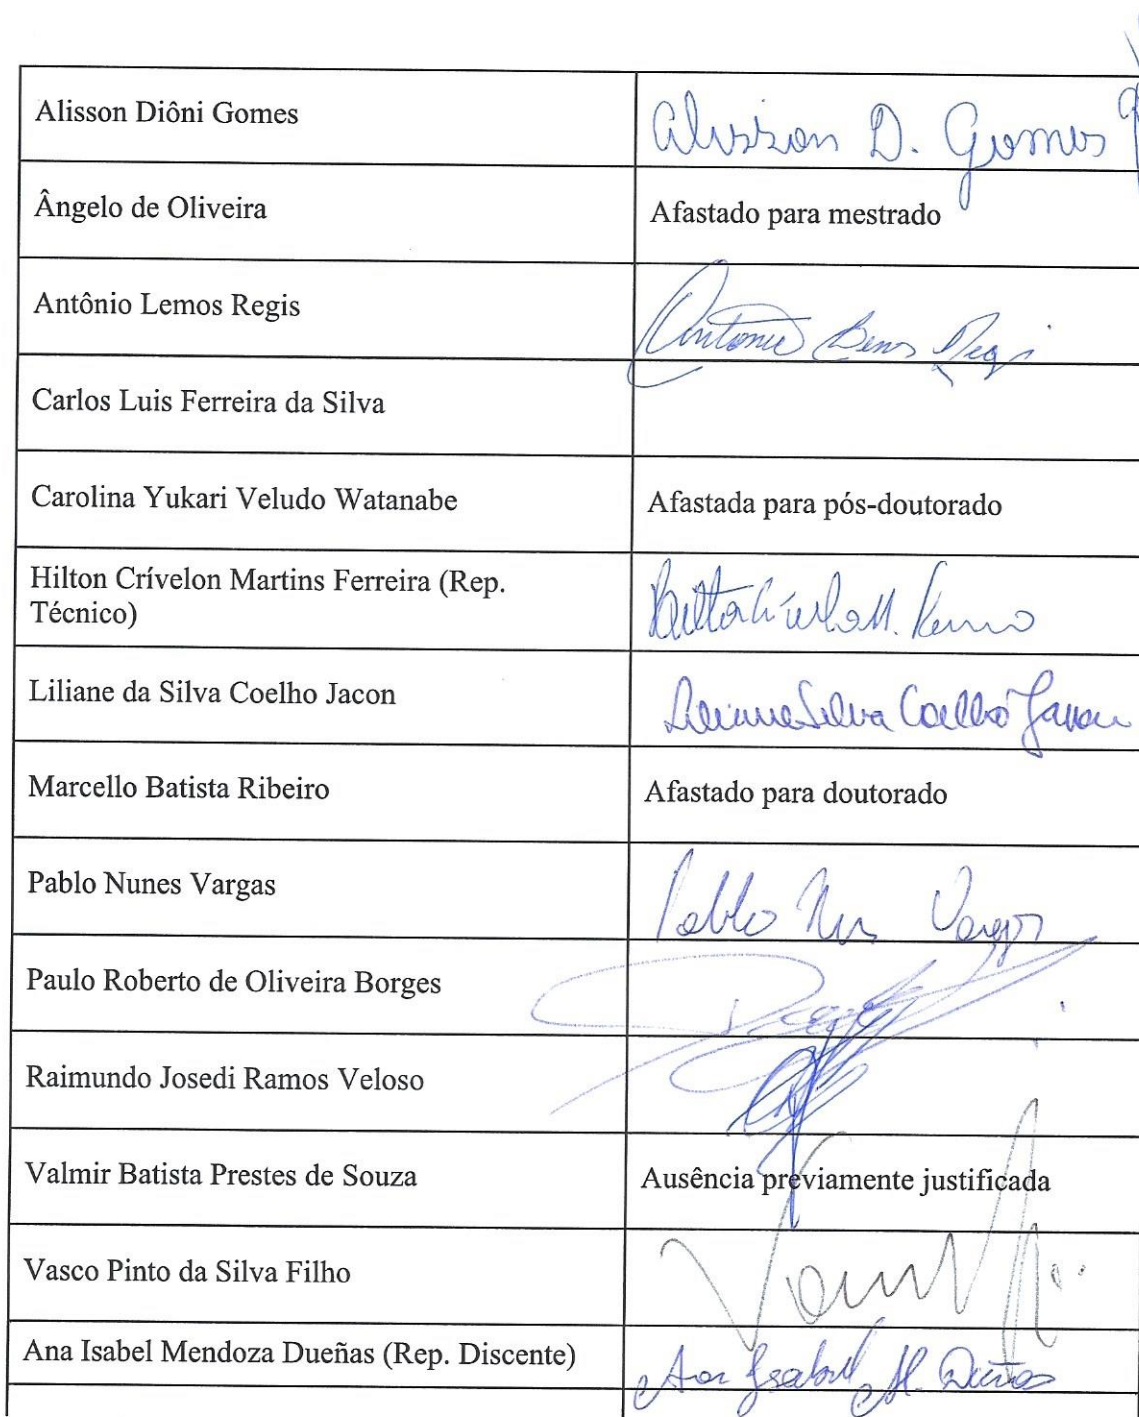 Alisson Diôni Gomes
Alisson D. Gomes
Ângelo de Oliveira
Afastado para mestrado
Antônio Lemos Regis
Antonio Lemos Regis
Carlos Luis Ferreira da Silva
Carolina Yukari Veludo Watanabe
Afastada para pós-doutorado
Hilton Crívelon Martins Ferreira (Rep.
Técnico)
Liliane da Silva Coelho Jacon
Liliane Silva Coelho Jacon
Marcello Batista Ribeiro
Afastado para doutorado
Pablo Nunes Vargas
Pablo Vargas
Paulo Roberto de Oliveira Borges
Raimundo Josedi Ramos Veloso
Valmir Batista Prestes de Souza
Ausência previamente justificada
Vasco Pinto da Silva Filho
Ana Isabel Mendoza Dueñas (Rep. Discente)
Ana Isabel M. Dueñas